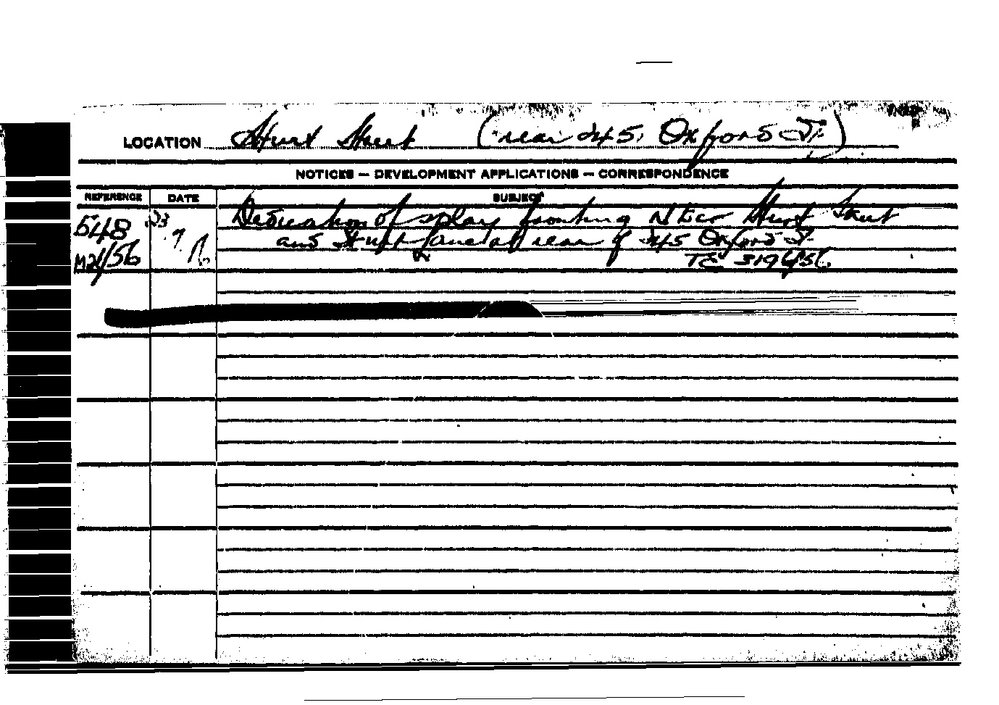 LOCATION Sturt Street (rear 245, Oxford St.)
NOTICES — DEVELOPMENT APPLICATIONS — CORRESPONDENCE
REFERENCE DATE SUBJECT
548 23 Dedication of splay fronting Sturt Street
M21/56 9 and Sturt Lane at rear of 245 Oxford St.
TC 3196/56